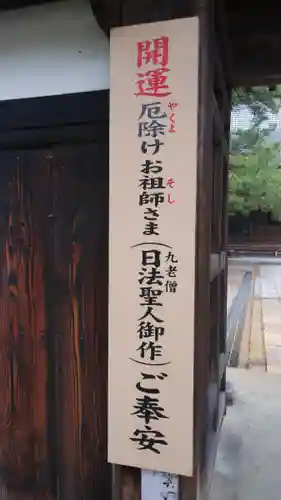 開運
厄除けお祖師さま
やくよ
そし
(日法聖人御作)
九老僧
ご奉安